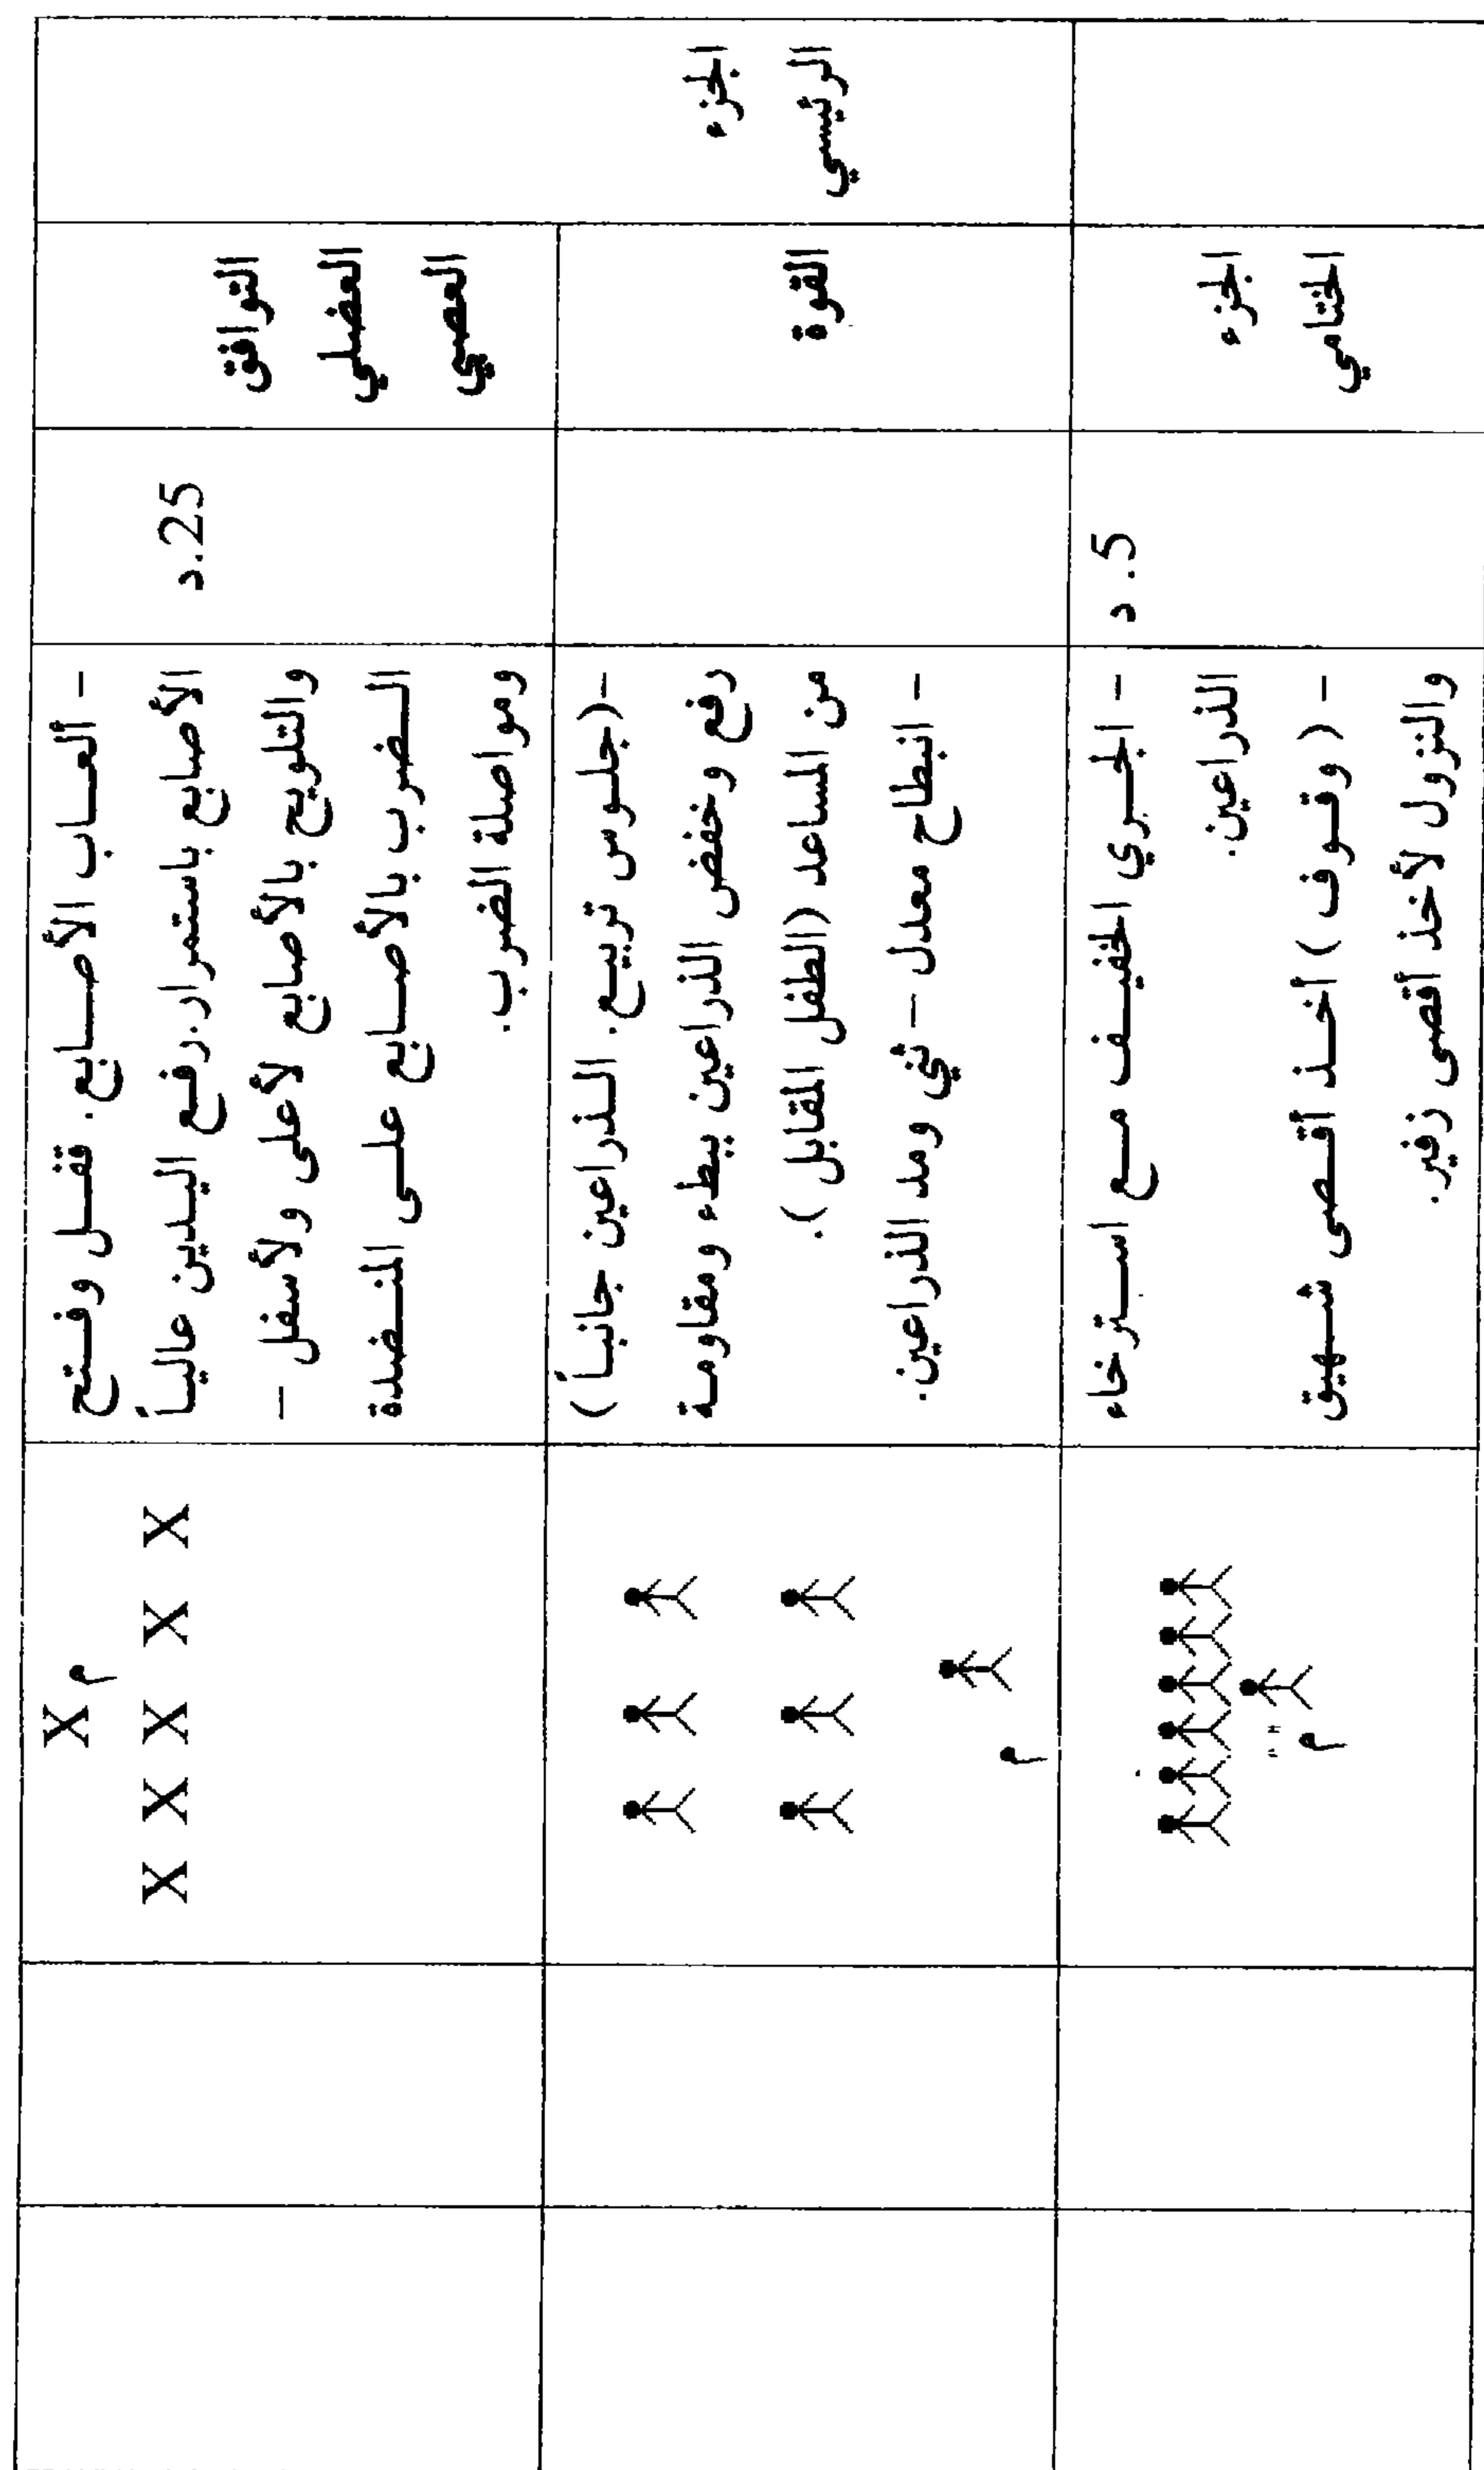 الجزء
الرئيسي
التوافق
العضلي
العصبي
25.د
- ألعاب الأصابع. قفل وفتح
الأصابع باستمرار.رفع اليدين عالياً
والتلويح بالأصابع لأعلى ولأسفل –
الضرب بالأصابع على المنضدة
ومواصلة الضرب.
X م
X X X X X
القوة
-(جلوس تربيع. الذراعين جانباً)
رفع وخفض الذراعين ببطء ومقاومة
من المساعد (الطفل المقابل).
- انبطاح معدل – ثني ومد الذراعين.
م
الجزء
الختامي
5. د
- الجري الخفيف مع استرخاء
الذراعين.
- (وقوف) أخذ أقصى شهيق
والنزول لأخذ أقصى زفير.
م